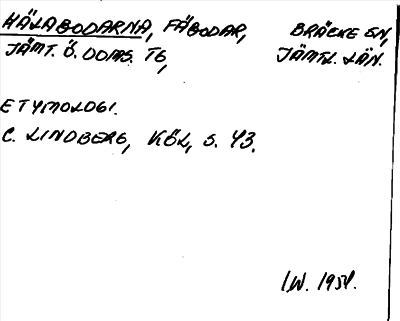 HÄLABODARNA, FÄBODAR, BRÄCKE SN,
JÄMT. Ö. DOMS. TG, JÄMTL. LÄN.
ETYMOLOGI.
C. LINDBERG, KÖL, S. 43.
I.W. 1954.